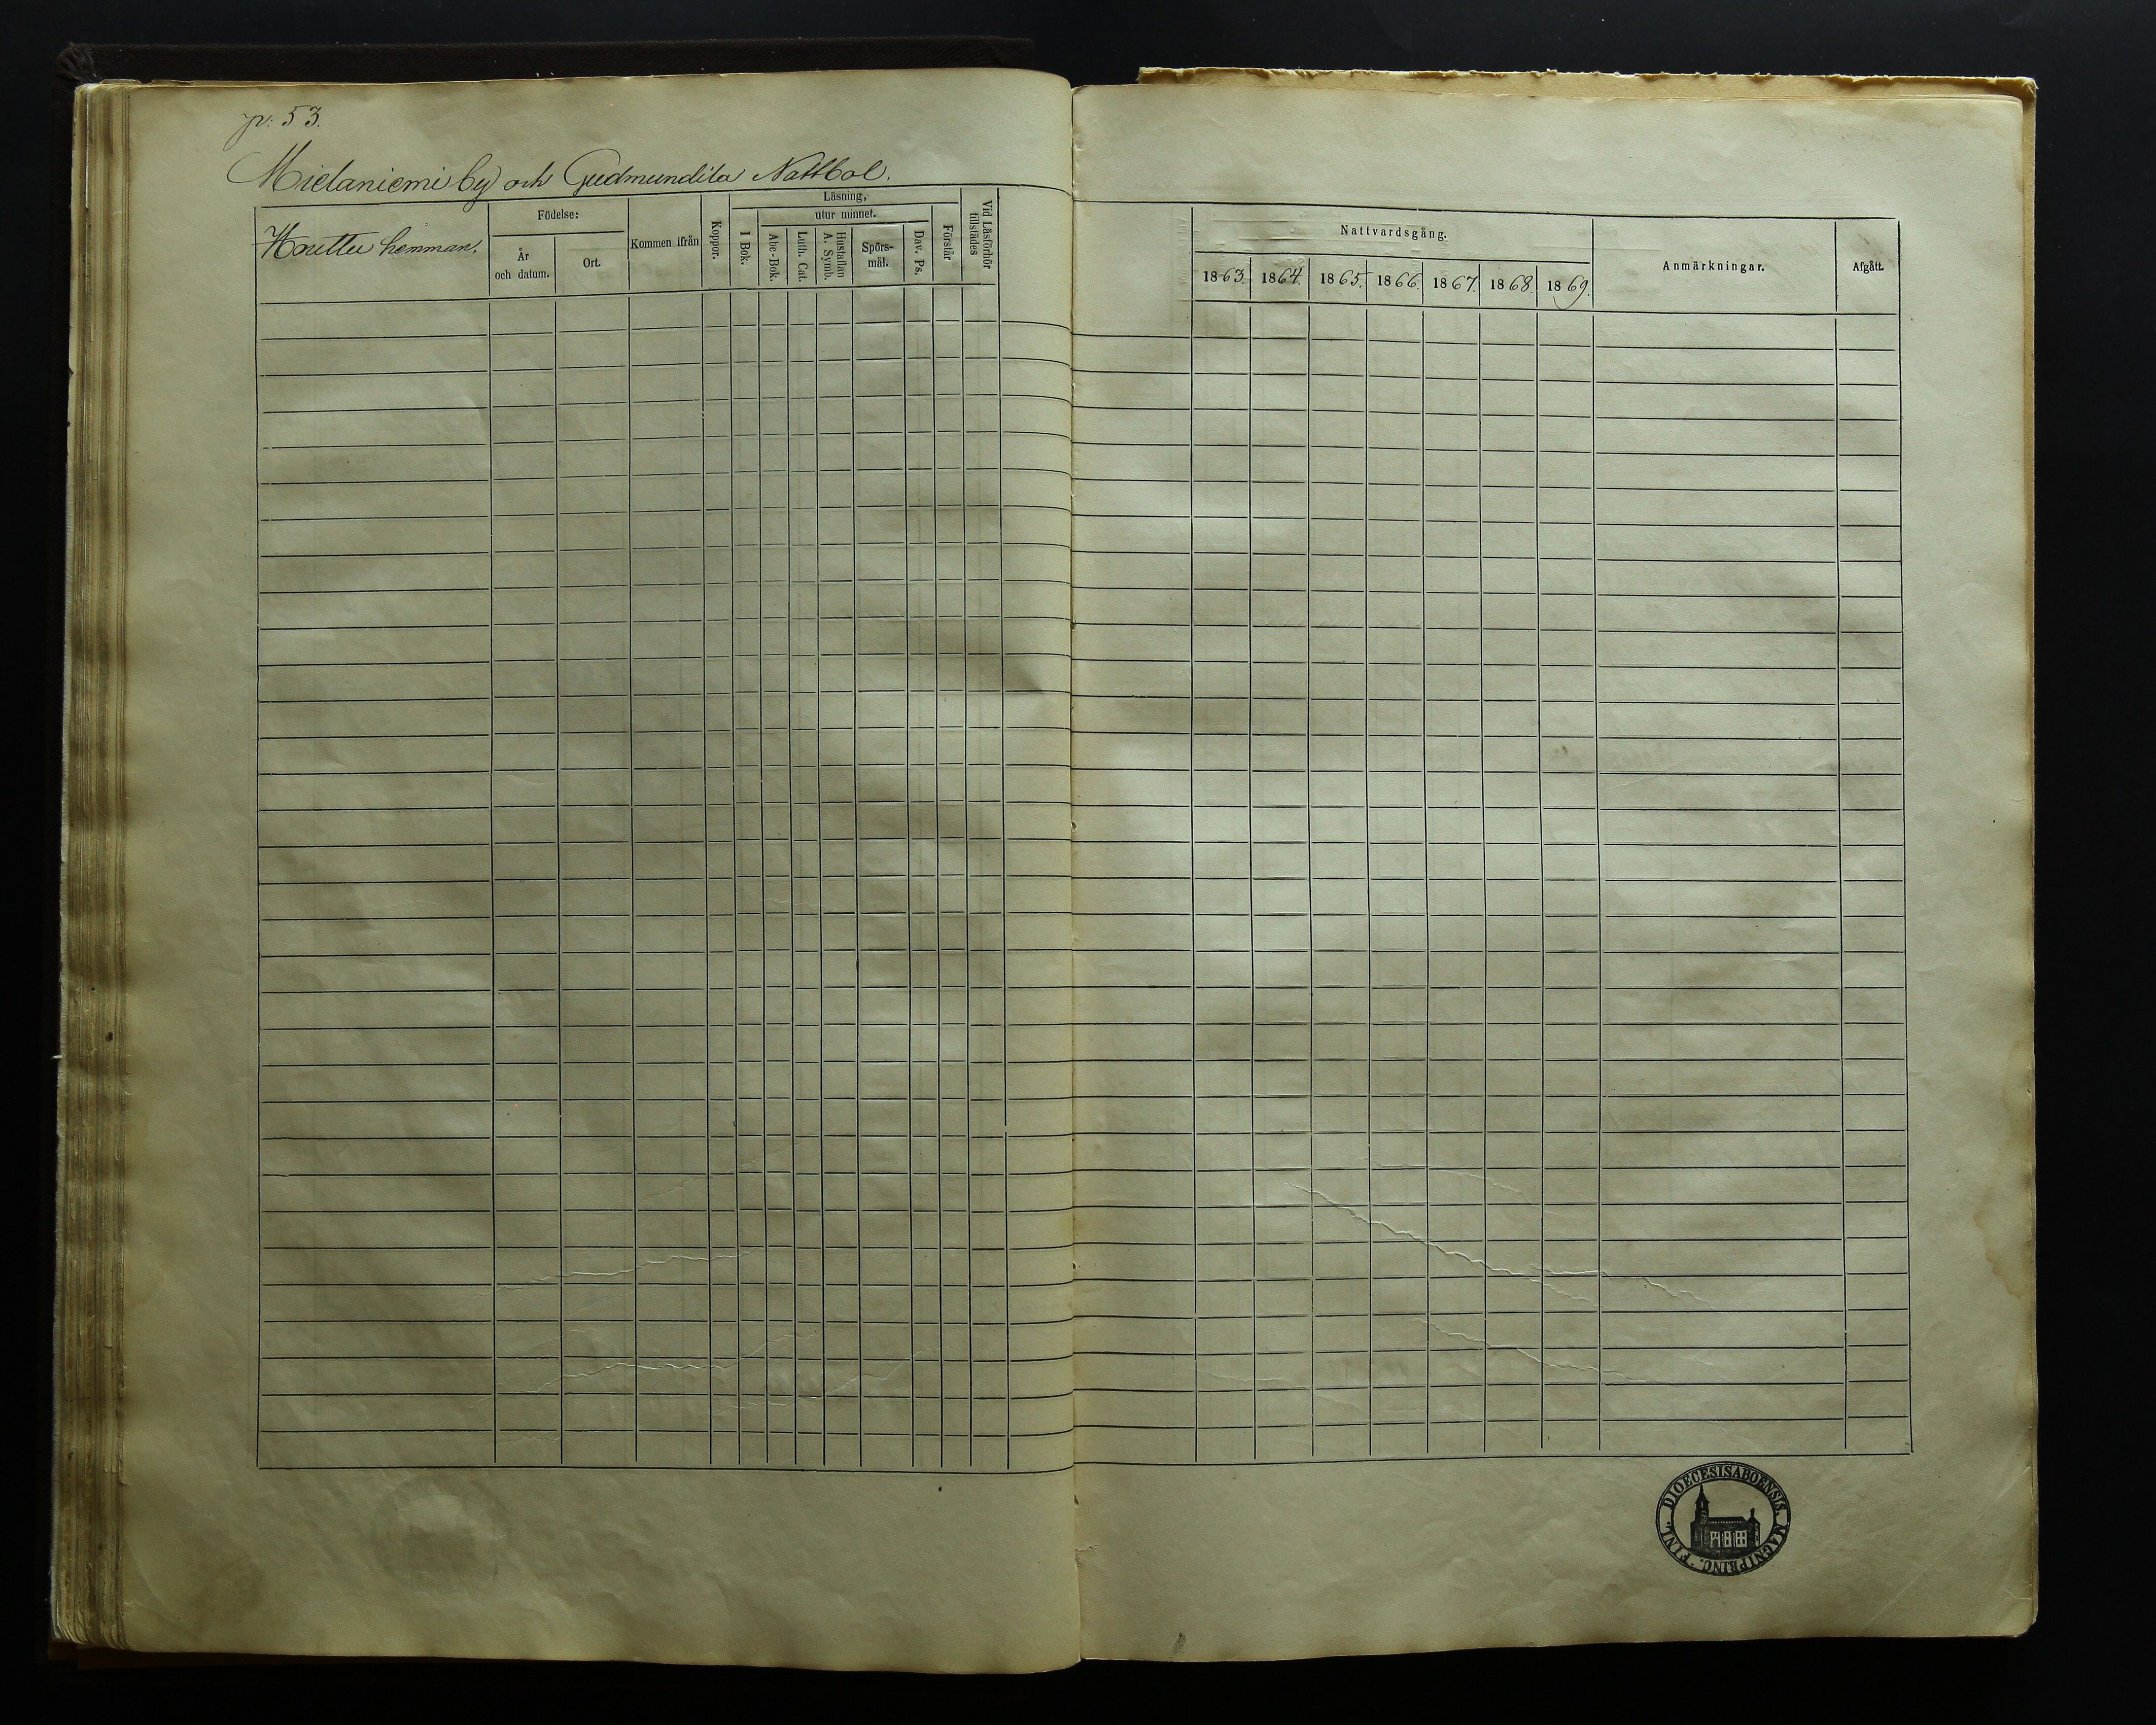 p: 53.
Mielaniemi by och Gudmundila Nattbol.
Knuttu hemman.
Födelse:
År
och datum.
Ort.
Kommen ifrån
Koppor.
Läsning,
utur minnet.
I Bok.
Abc-Bok.
Luth. Cat.
Hustaflan
A. Symb.
Spörs-
mål.
Dav. Ps.
Förstår
Vid Läsförhör
tillstädes
Nattvardsgång.
1863. 1864. 1865. 1866. 1867. 1868. 1869.
Anmärkningar.
Afgått.
DIOECESIS ABOENSIS. MAGNI PRINC. FINL.